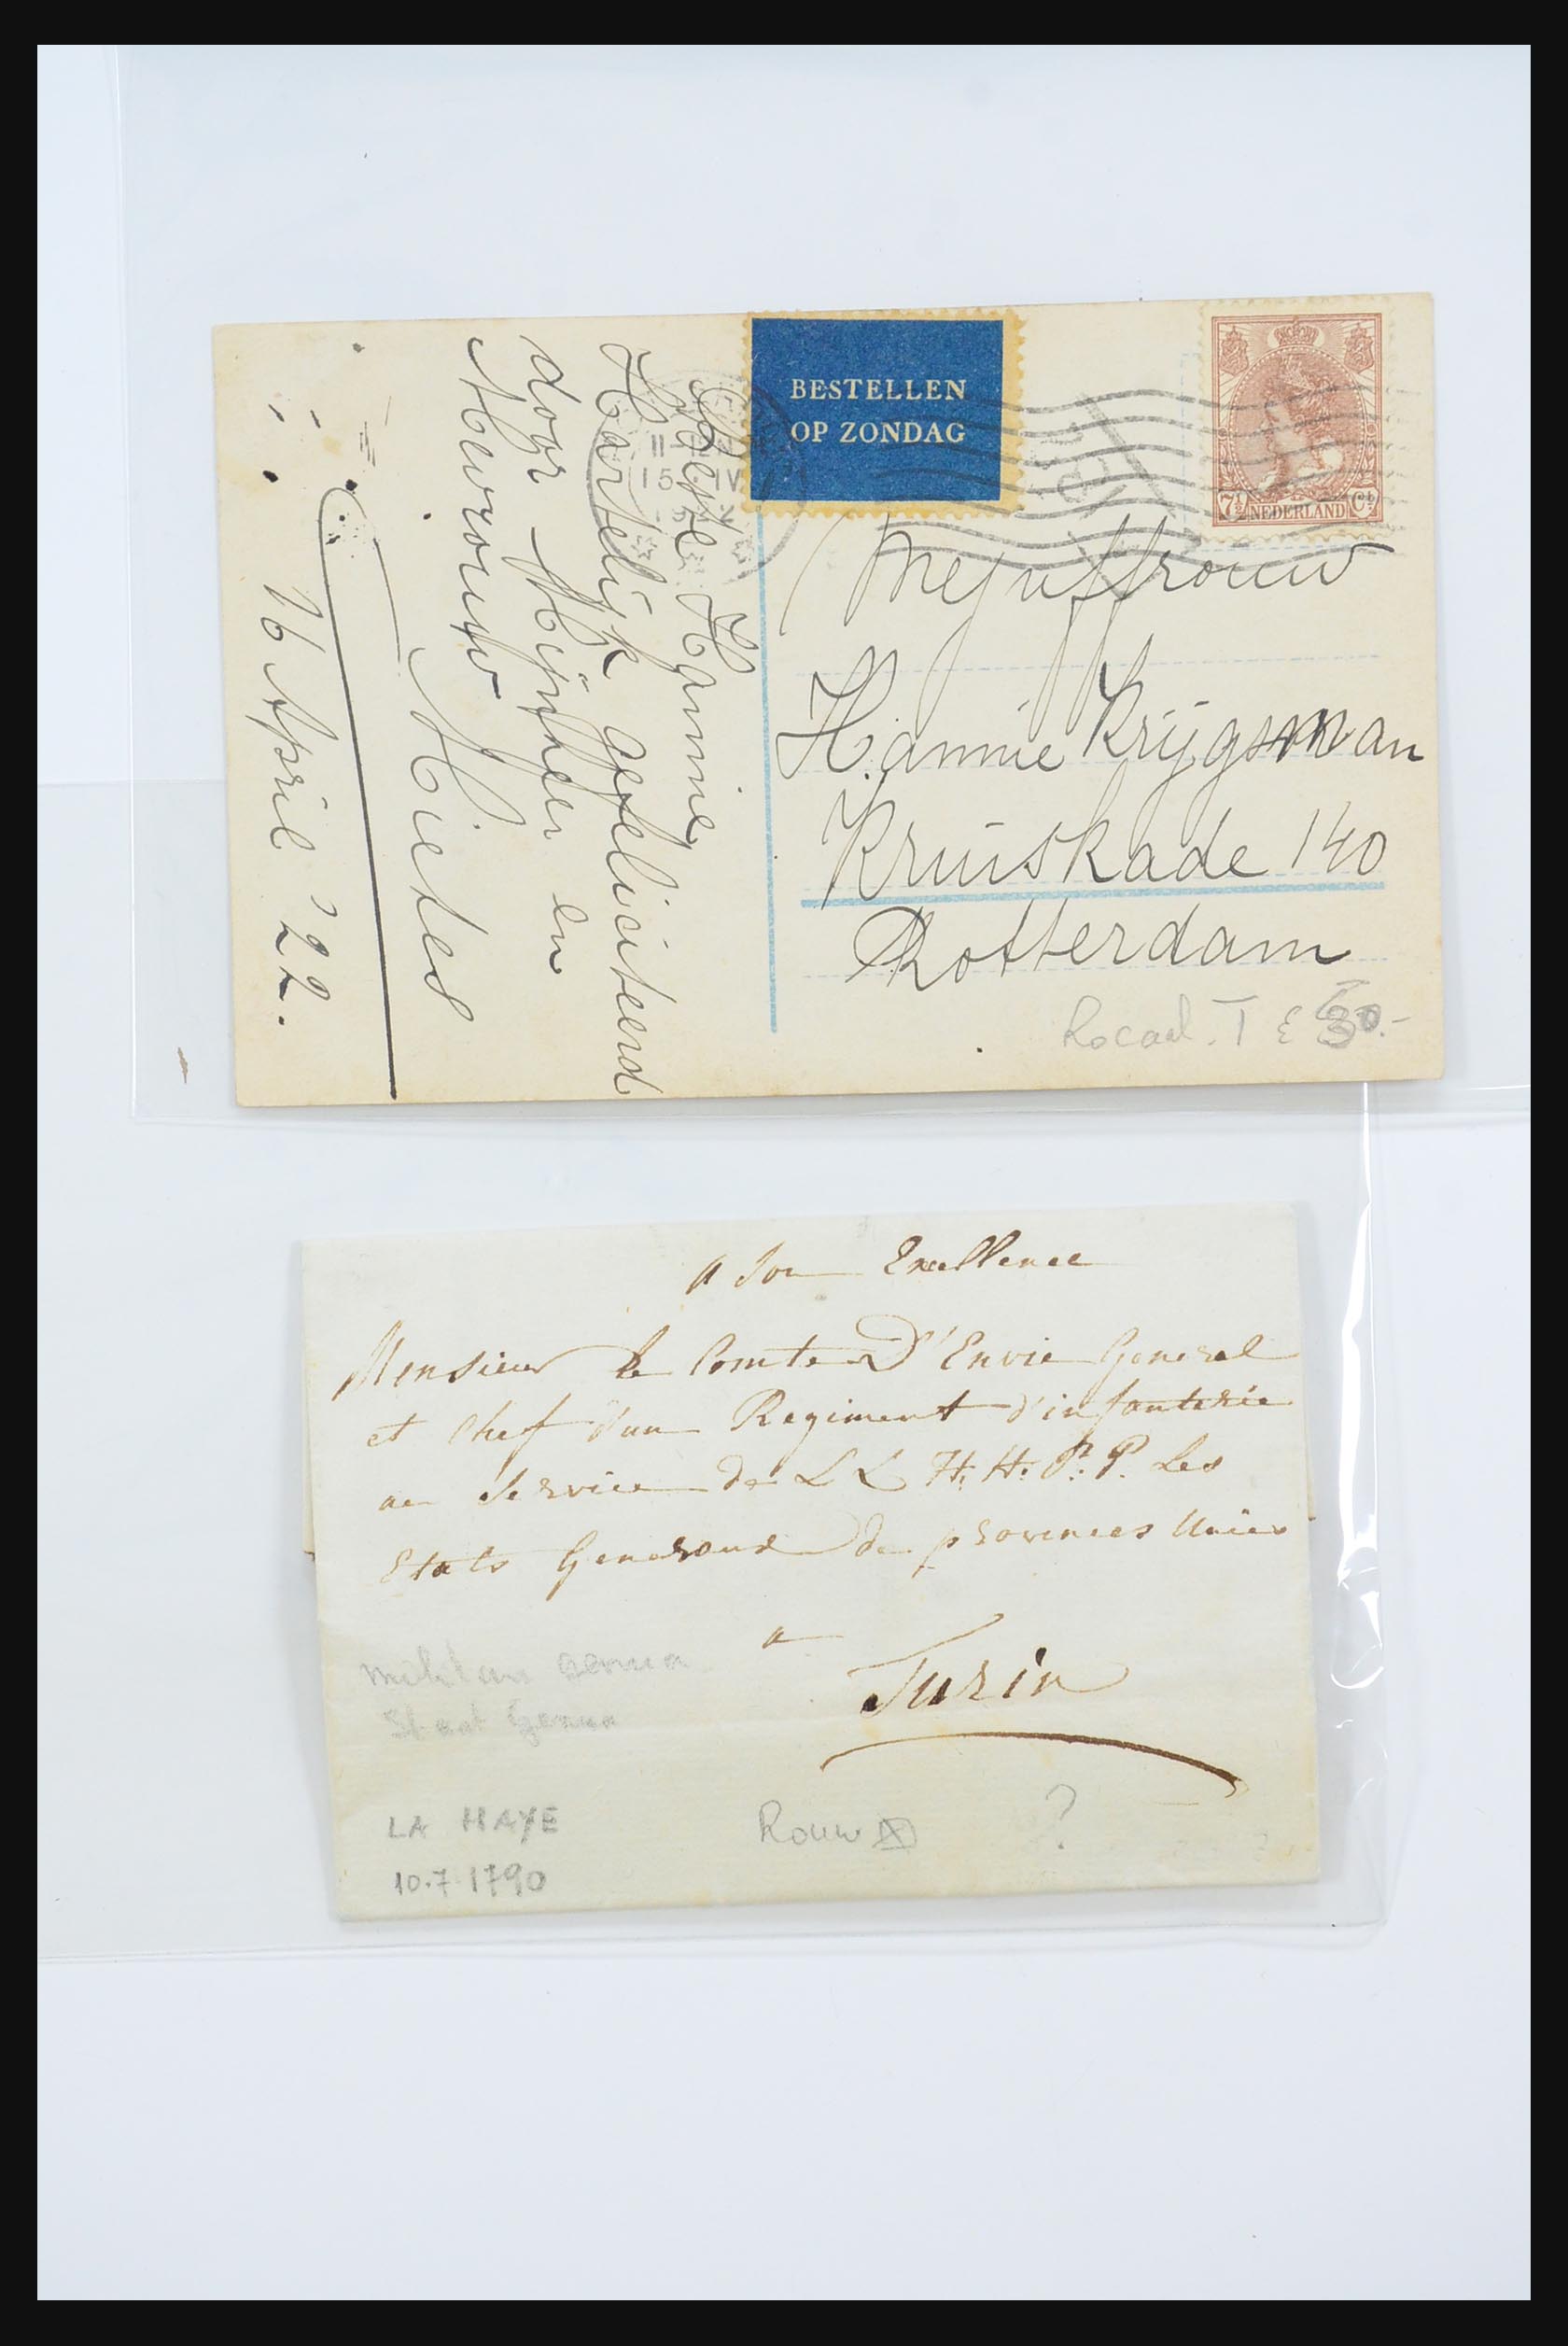 BESTELLEN
OP ZONDAG
7½ NEDERLAND Ct
15 IV
Mejuffrouw
Hannie Krijgsman
Kruiskade 140
Rotterdam
Locaal. T
Beste Hannie
Hartelijk gefeliciteerd
door Mijnheer en
Mevrouw
Mieles
16 April '22.
A Son Excellence
Monsieur le Comte D'Envie General
et Chef d'un Regiment d'infanterie
au Service de L L H. H. P. P. Les
Etats Generaux de provinces Unies
a
Turin
Genua
Staat Genua
LA HAYE
10.7.1790
Rouw
?